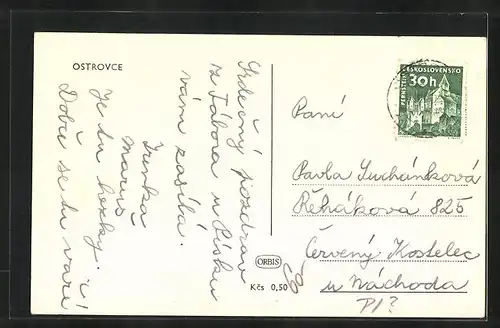 OSTROVCE
Srdečný pozdrav
z tábora u Písku
vám zasílá.
Irenka
Je tu hezky.
Dobře se tu vaří!
ORBIS
Kčs 0,50
ČESKOSLOVENSKO
30h
PERNŠTEJN
Paní
Pavla Suchánková
Řeháková 825
Červený Kostelec
u Náchoda
P1?